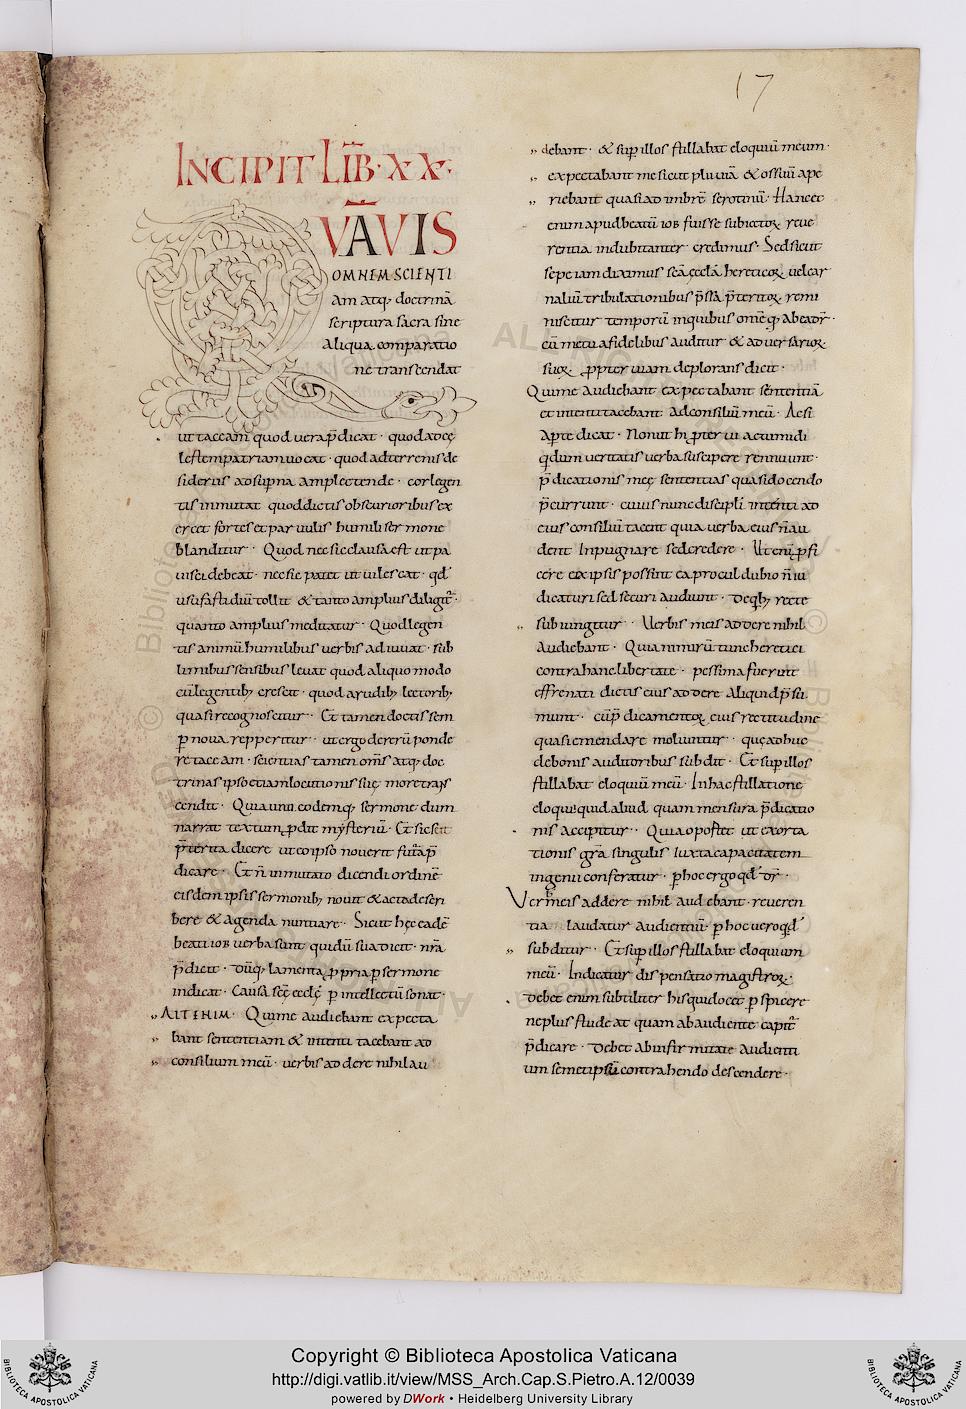 17
INCIPIT LIB̅·XX·
QVĀVIS
OMNEM SCIENTI
am atq; doctrinā
scriptura sacra sine
aliqua comparatio
ne transcendat
ut taceam quod uera p̄dicat · quod ad cę
lestem patriam uocat · quod a terrenis de
sideriis ad sup̄na amplectenda · cor legen
tis inmutat quod dictis obscurioribus ex
ercet fortes et paruulis humili sermone
blanditur · Quod nec sic clausa est ut pa
uesci debeat · nec sic patet ut uilescat · qđ
usu fastidiū tollit & tanto amplius diligit̄ ·
quanto amplius meditatur · Quod legen
tis animū humilibus uerbis adiuuat · sub
limibus sensibus leuat quod aliquo modo
cū legentib; crescit · quod a rudib; lectorib;
quasi recognoscitur · Et tamen doctis sem
ꝑ noua repperitur · ut ergo de rerū ponde
re taceam · scientias tamen om̄s atq; doc
trinas ipso etiam locutionis suę more trans
cendit · Quia uno eodemq; sermone dum
narrat textum, ꝓdit mysteriū · Et sic scit
p̄terita dicere ut eo ipso nouerit futura p̄
dicare · Et n̄ inmutato dicendi ordinē
eisdem ipsis sermonib; nouit & acta descri
bere & agenda nuntiare · Sicut hęc eadē
beati iob uerba sunt qui dū sua dicit · nr̄a
p̄dicit · Dūq; lamenta ꝓpria ꝑ sermone
indicat · Causā scę̄ ecclę̄ ꝑ intellectū sonat ·
AIT ENIM · Qui me audiebant expecta
bant sententiam & intenti tacebant ad
consilium meū · uerbis addere nihil au
debant · & sup̄ illos stillabat eloquiū meum ·
expectabant me sicut pluuiā & os suū ape
riebant quasi ad imbrē serotinū · Hanc et
enim apud beatū iob fuisse subiectoꝝ reue
rentia indubitanter credimus · Sed sicut
sepe iam diximus scā ęcclā hereticoꝝ uel car
naliū tribulationibus p̄ssa p̄teritoꝝ remi
niscitur temporū in quibus om̄e q̄ ab ea dr̄ ·
cū metu a fidelibus auditur & aduersarioꝝ
suoꝝ ꝓpter uiam deplorans dicit ·
Qui me audiebant expectabant sententiā
et intenti tacebant ad consiliū meū · Ac si
aperte dicat · Non ut hi
qđum ueritatis uerba suscipere rennuunt ·
p̄dicationis meę sententias quasi docendo
p̄currunt · cuius nunc discipli intenti ad
eius consiliū tacent quia uerba eius n̄ au
dent inpugnare sed credere · Ut enī ꝓfi
cere ex ipsis possint ea procul dubio n̄ iu
dicaturi sed secuti audiunt · De q̄b; recte
subiungitur · Uerbis meis addere nihil
audiebant · Quia nimirū tunc heretici
contra hanc libertate pessima fuerint
effrenati dictis eius addere aliquid p̄su
munt · cū p̄dicamentoꝝ eius rectitudine
quasi emendare moliuntur · quę adhuc
de bonis auditoribus subdit · Et sup̄ illos
stillabat eloquiū meū · In hac stillatione
eloquii quid aliud quam mensura p̄dicatio
nis accipitur · Quia oportet ut exorta
tionis gr̄a singulis iuxta capacitatem
ingenii conferatur · ꝑ hoc ergo qđ dr̄ ·
Uerbis meis addere nihil audebant · reueren
tia laudatur audientiū · ꝑ hoc uero qđ
subditur · Et sup̄ illos stillabat eloquium
meū · Indicatur dispensatio magistroꝝ ·
Debet enim subtiliter his qui docet ꝑspicere
ne plus studeat quam ab audiente capit̄
p̄dicare · Debet ab infirmitate audienti
um semetipsū contrahendo descendere ·
Copyright © Biblioteca Apostolica Vaticana
http://digi.vatlib.it/view/MSS_Arch.Cap.S.Pietro.A.12/0039
powered by DWork • Heidelberg University Library